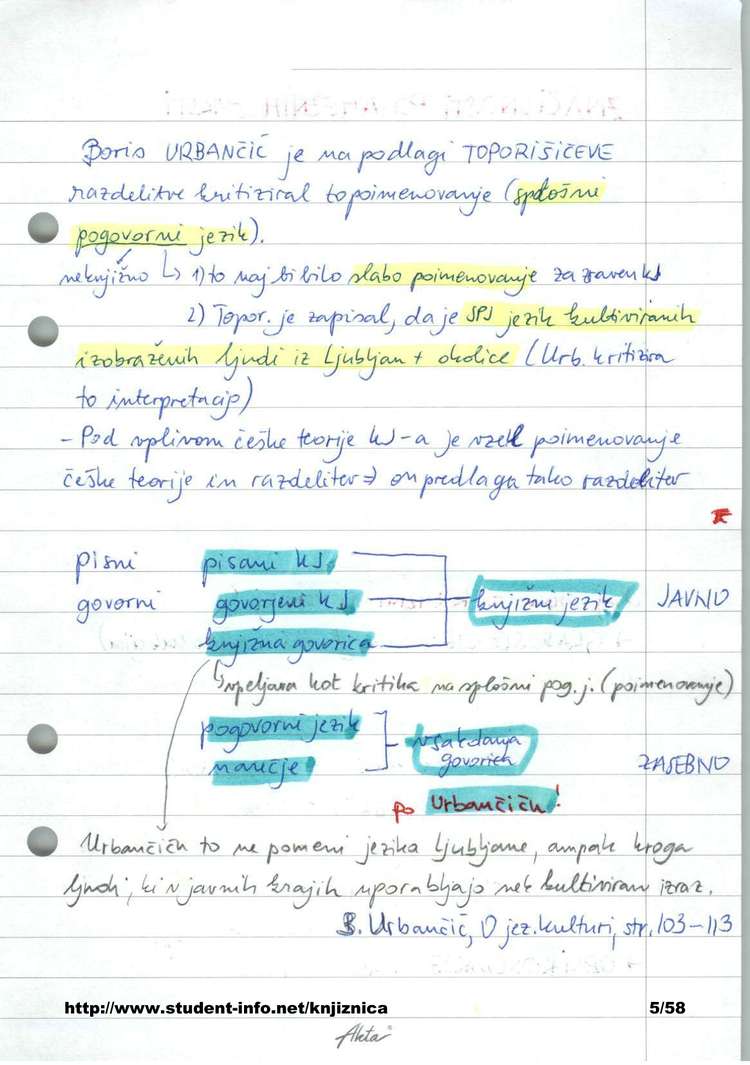 Boris URBANČIČ je na podlagi TOPORIŠIČEVE
razdelitve kritiziral to poimenovanje (splošni
pogovorni jezik).
neknjižno ↳ 1) to naj bi bilo slabo poimenovanje za raven kj
2) Topor. je zapisal, da je SPJ jezik kultiviranih
izobraženih ljudi iz Ljubljan + okolice (Urb. kritizira
to interpretacijo)
- Pod vplivom češke teorije KJ-a je vzel poimenovanje
češke teorije in razdelitev ⇒ on predlaga tako razdelitev
pisni pisani KJ
govorni govorjeni KJ knjižni jezik JAVNO
knjižna govorica
↳ vpeljana kot kritika na splošni pog. j. (poimenovanje)
pogovorni jezik vsakdanja
govorica
narečje ZASEBNO
po Urbančiču!
Urbančiču to ne pomeni jezika Ljubljane, ampak kroga
ljudi, ki v javnih krajih uporabljajo nek kultiviran izraz.
B. Urbančič, O jez. kulturi, str. 103-113
http://www.student-info.net/knjiznica 5/58
Akta